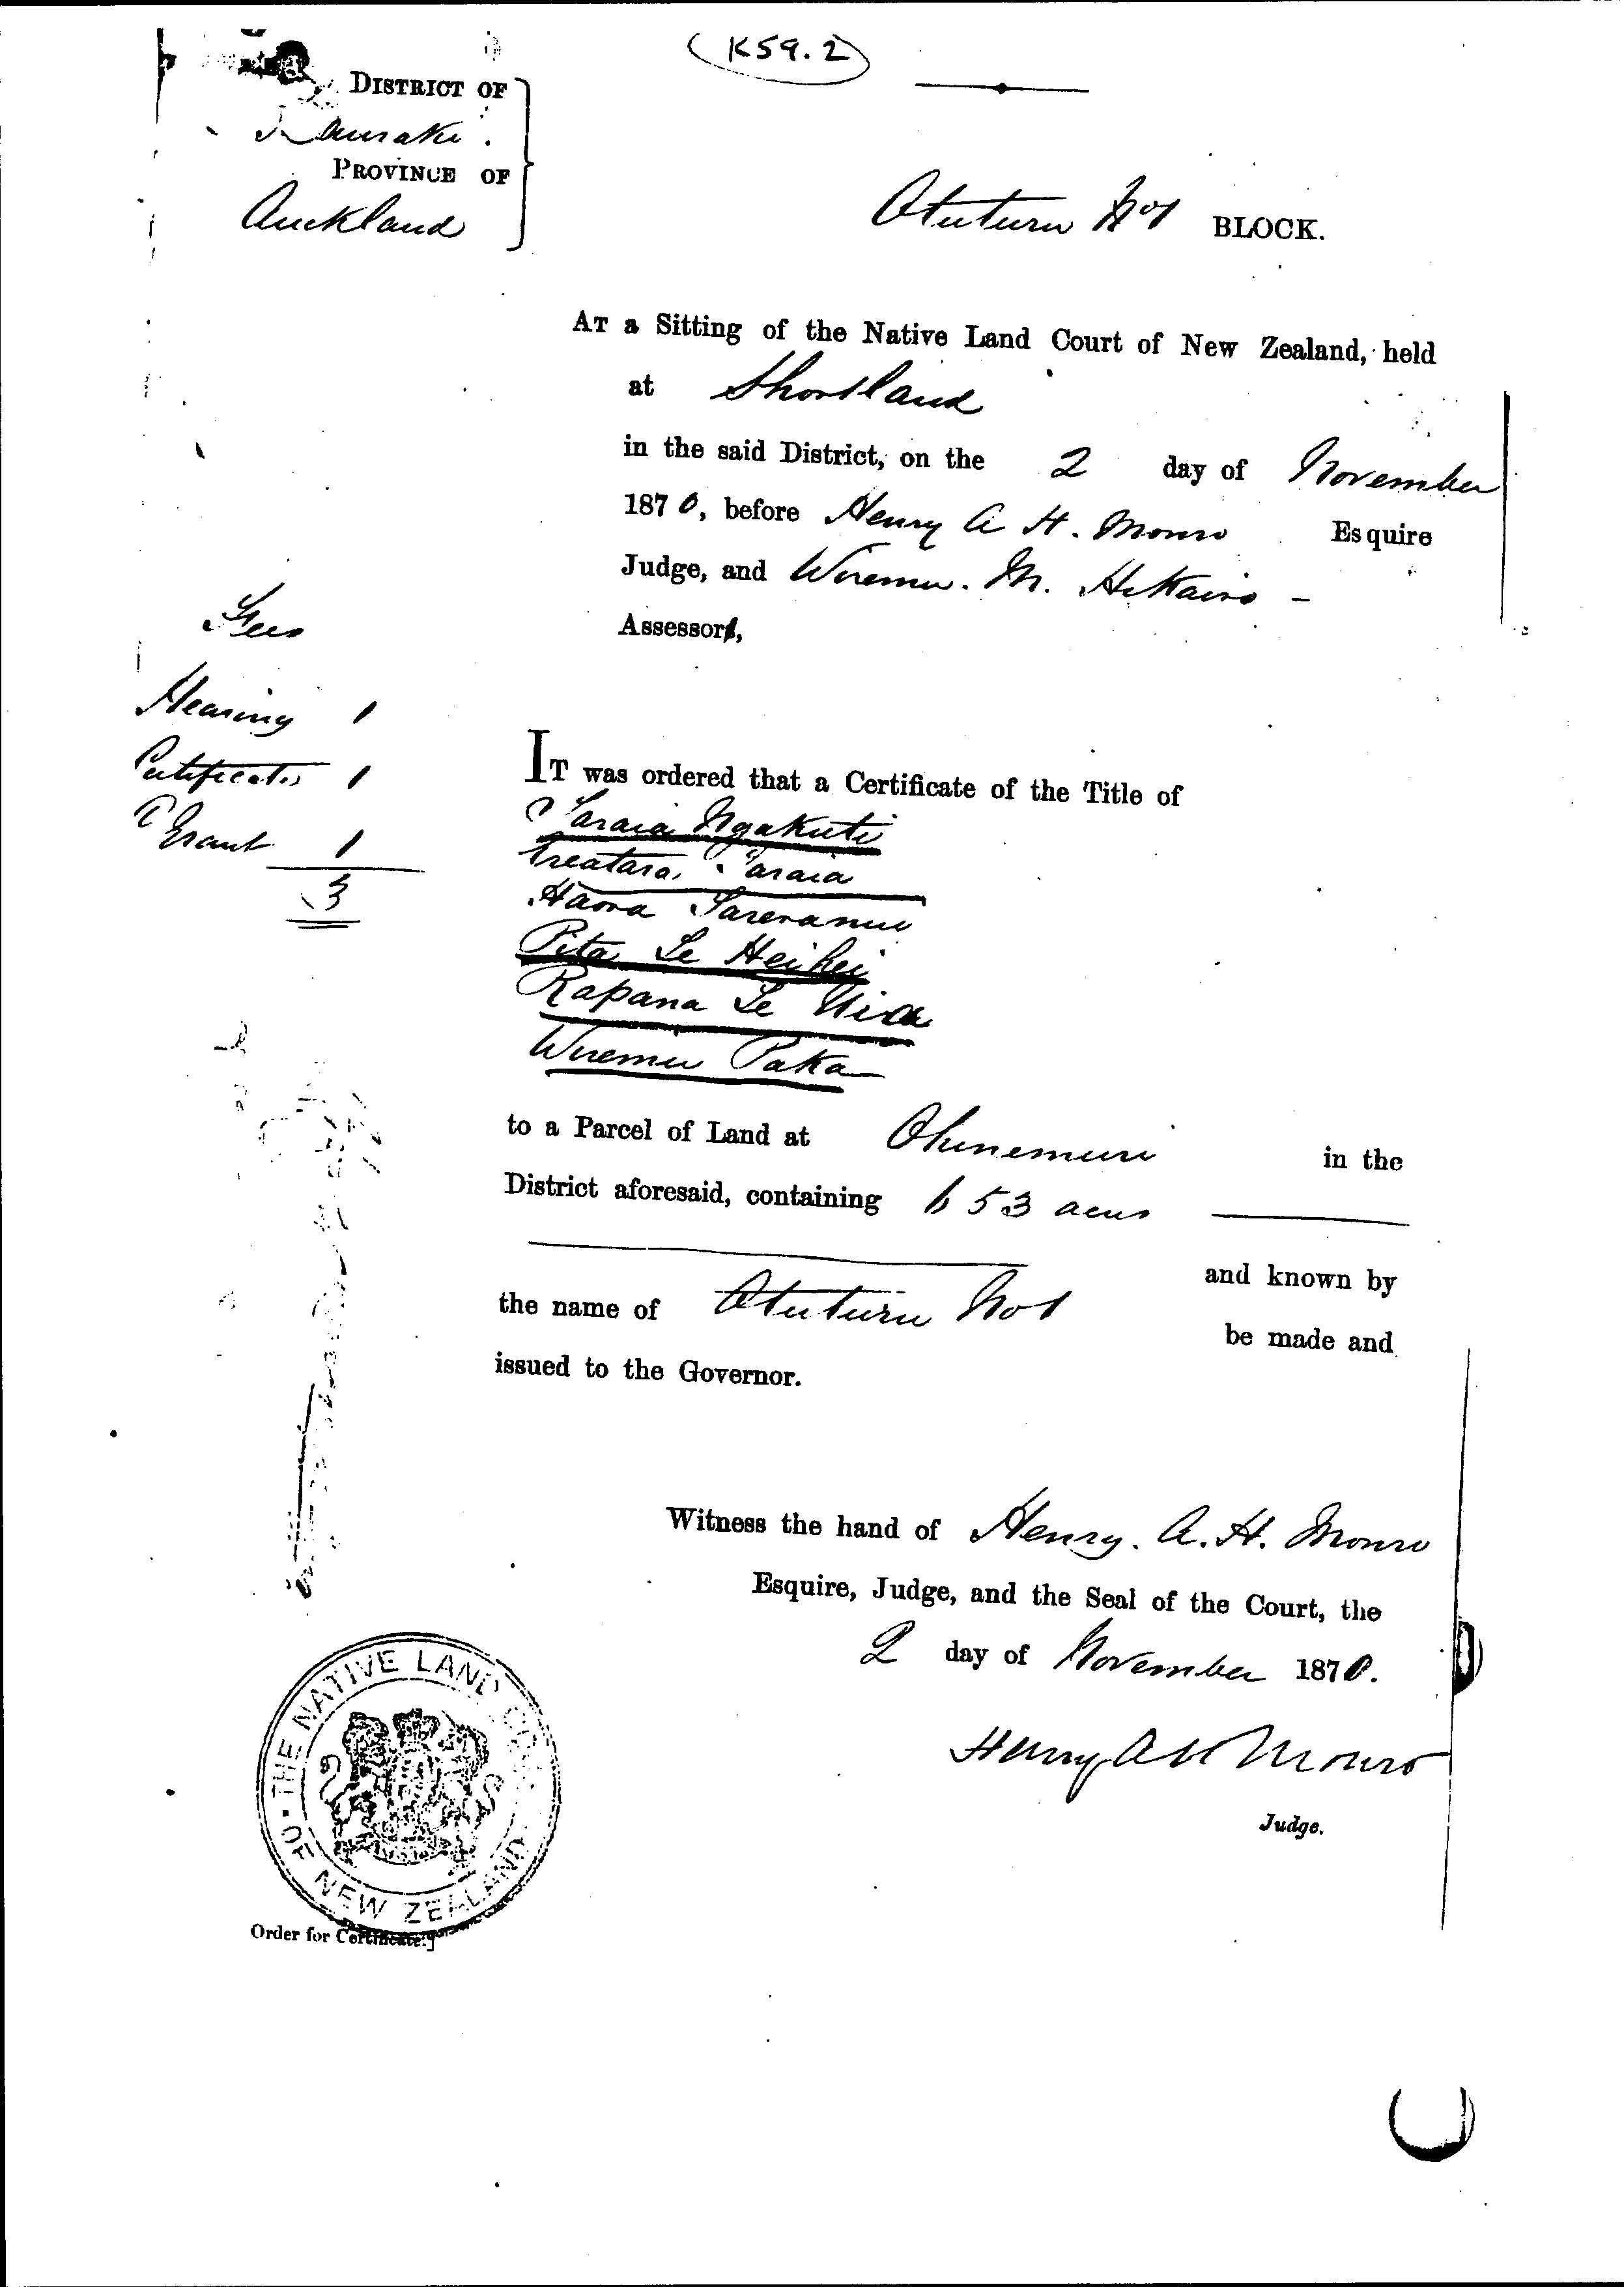 K59.2
DISTRICT OF
Hauraki
PROVINCE OF
Auckland
Otuturu No1 BLOCK.
AT a Sitting of the Native Land Court of New Zealand, held
at Shortland
in the said District, on the 2 day of November
1870, before Henry A H. Monro Esquire
Judge, and Wiremu. M. Hikairo -
Assessor,
Fees
Hearing 1
Certificate 1
C Grant 1
3
IT was ordered that a Certificate of the Title of
Taraia Ngakuti
Areatara Taraia
Haora Tareranui
Pita Te Heihei
Rapana Te
Wiremu Paka
to a Parcel of Land at Ohinemuri in the
District aforesaid, containing 653 acres
and known by
the name of Otuturu No1
be made and
issued to the Governor.
Witness the hand of Henry. A. H. Monro
Esquire, Judge, and the Seal of the Court, the
2 day of November 1870.
Henry A H Monro
Judge.
THE NATIVE LAND COURT OF NEW ZEALAND
Order for Certificate.]